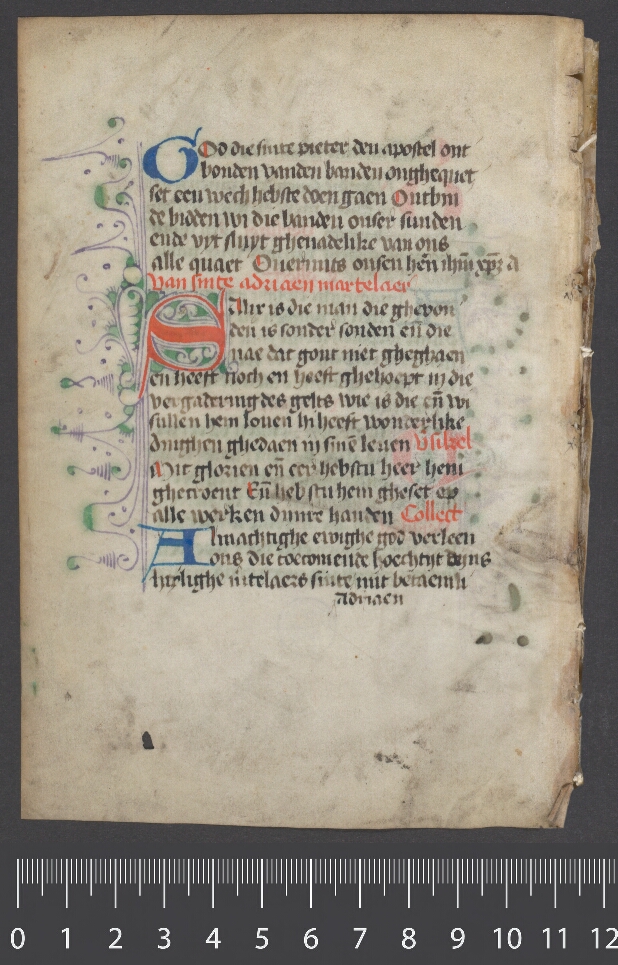 God die sinte pieter den apostel ont
bonden vanden banden onghequet
set een wech hebste doen gaen Ontbin
de bidden wi die banden onser sunden
ende vyt sluyt ghenadelike van ons
alle quaet Ouermits onsen hēn ihm xpm A
van sinte adriaen martelaer
Air is die man die gheuon
den is sonder sonden en̄ die
nae dat gout niet gheghaen
en heeft noch en heeft ghehoept in die
vergadering des gelts wie is die en̄ wi
sullen hem louen hi heeft wonderlike
dinghen ghedaen in sinē leuen vsikel
Mit glorien en̄ eer hebstu heer hem
ghecroent En̄ hebstu hem gheset op
alle werken dinre handen Collect
Almachtighe ewighe god verleen
ons die toecomende hoechtijt dijns
heylighe mtelaers sinte mit
Adriaen
0 1 2 3 4 5 6 7 8 9 10 11 12